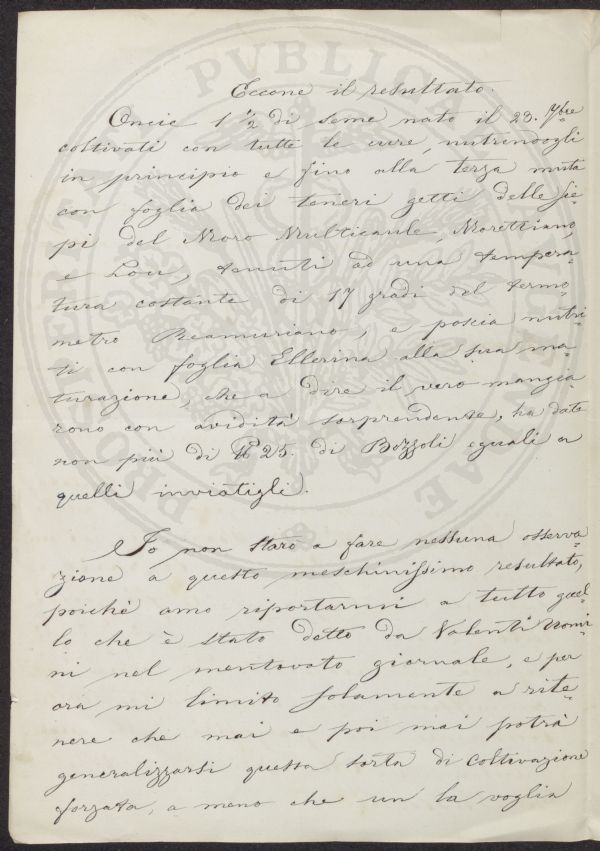 Eccone il resultato.
Oncie 1 ½ di seme nato il 23. 7bre
coltivati con tutte le cure, nutrendogli
in principio e fino alla terza muta
con foglia dei teneri getti delle sie=
pi del Moro Multicaule, Morettiano,
e Lou, tenuti ad una tempera=
tura costante di 17 gradi del termo=
metro Reamuriano, e poscia nutri=
ti con foglia Ellerina alla sua ma=
turazione, che a dire il vero mangia
rono con avidità sorprendente, ha dato
non più di 25. di Bozzoli eguali a
quelli inviatigli.
Io non starò a fare nessuna osserva=
zione a questo meschinissimo resultato,
poiché amo riportarmi a tutto quel=
lo che è stato detto da Valenti Uomi=
ni nel mentovato giornale, e per
ora mi limito solamente a rite=
nere che mai e poi mai potrà
generalizzarsi questa sorta di coltivazione
forzata, a meno che un la voglia
PROSPERITATI PVBLICAE